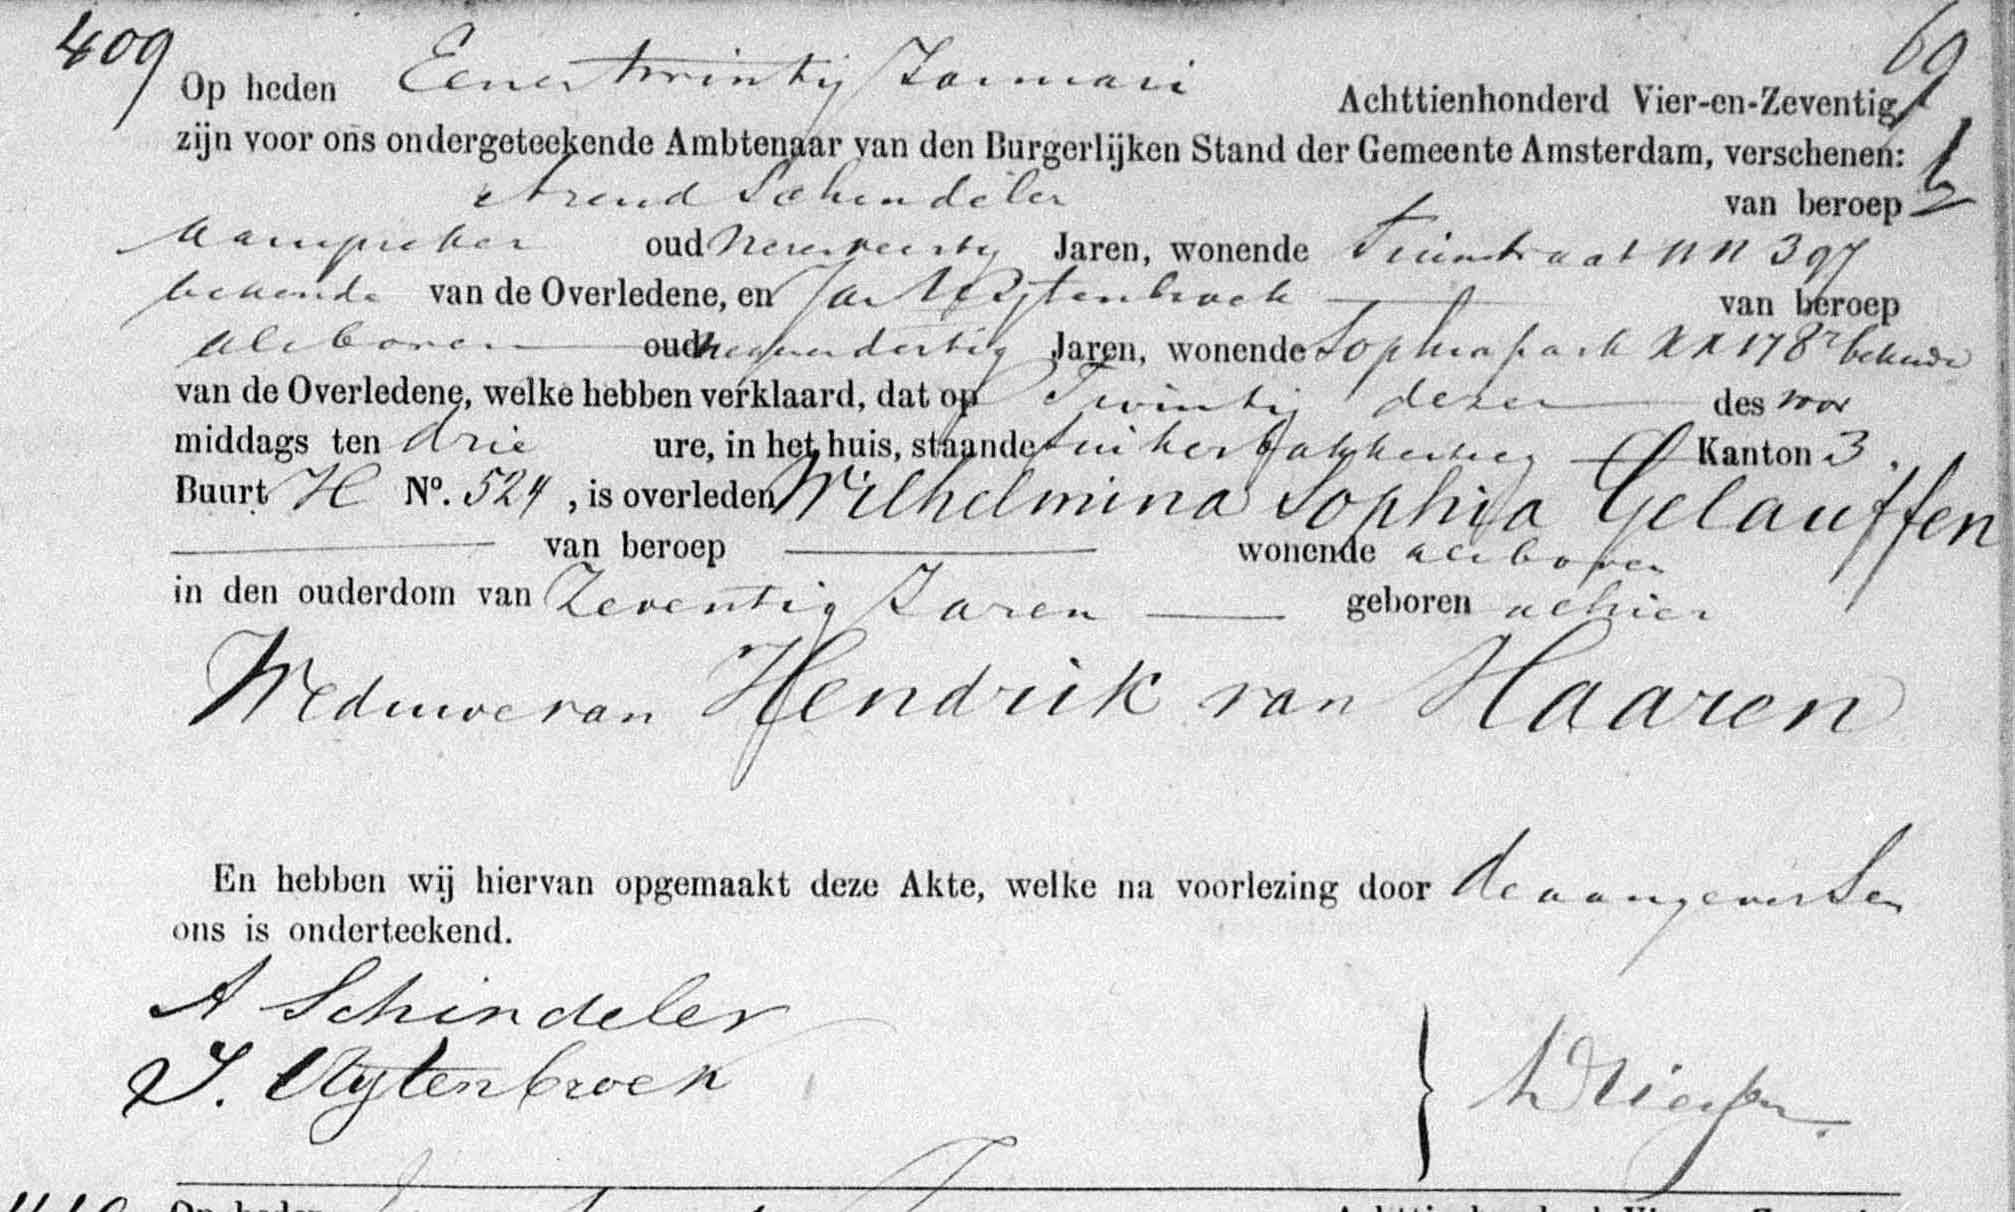 409
69
Op heden Eenentwintig Januari Achttienhonderd Vier-en-Zeventig
zijn voor ons ondergeteekende Ambtenaar van den Burgerlijken Stand der Gemeente Amsterdam, verschenen:
Arend Schindeler van beroep
aanspreker oud Jaren, wonende Tuinstraat NN 397
bekende van de Overledene, en Jan Uytenbroek van beroep
als boven oud negenendertig Jaren, wonende Sophiapark XX 178 bekende
van de Overledene, welke hebben verklaard, dat op Twintig dezer des voor
middags ten drie ure, in het huis, staande Suikerbakkersteeg Kanton 3.
Buurt H No. 524, is overleden Wilhelmina Sophia Gelauffen
van beroep wonende als boven
in den ouderdom van Zeventig Jaren geboren alhier
Weduwe van Hendrik van Haaren
En hebben wij hiervan opgemaakt deze Akte, welke na voorlezing door de aangevers en
ons is onderteekend.
A Schindeler
J. Uytenbroek
Op heden Achttienhonderd Vier-en-Zeventig